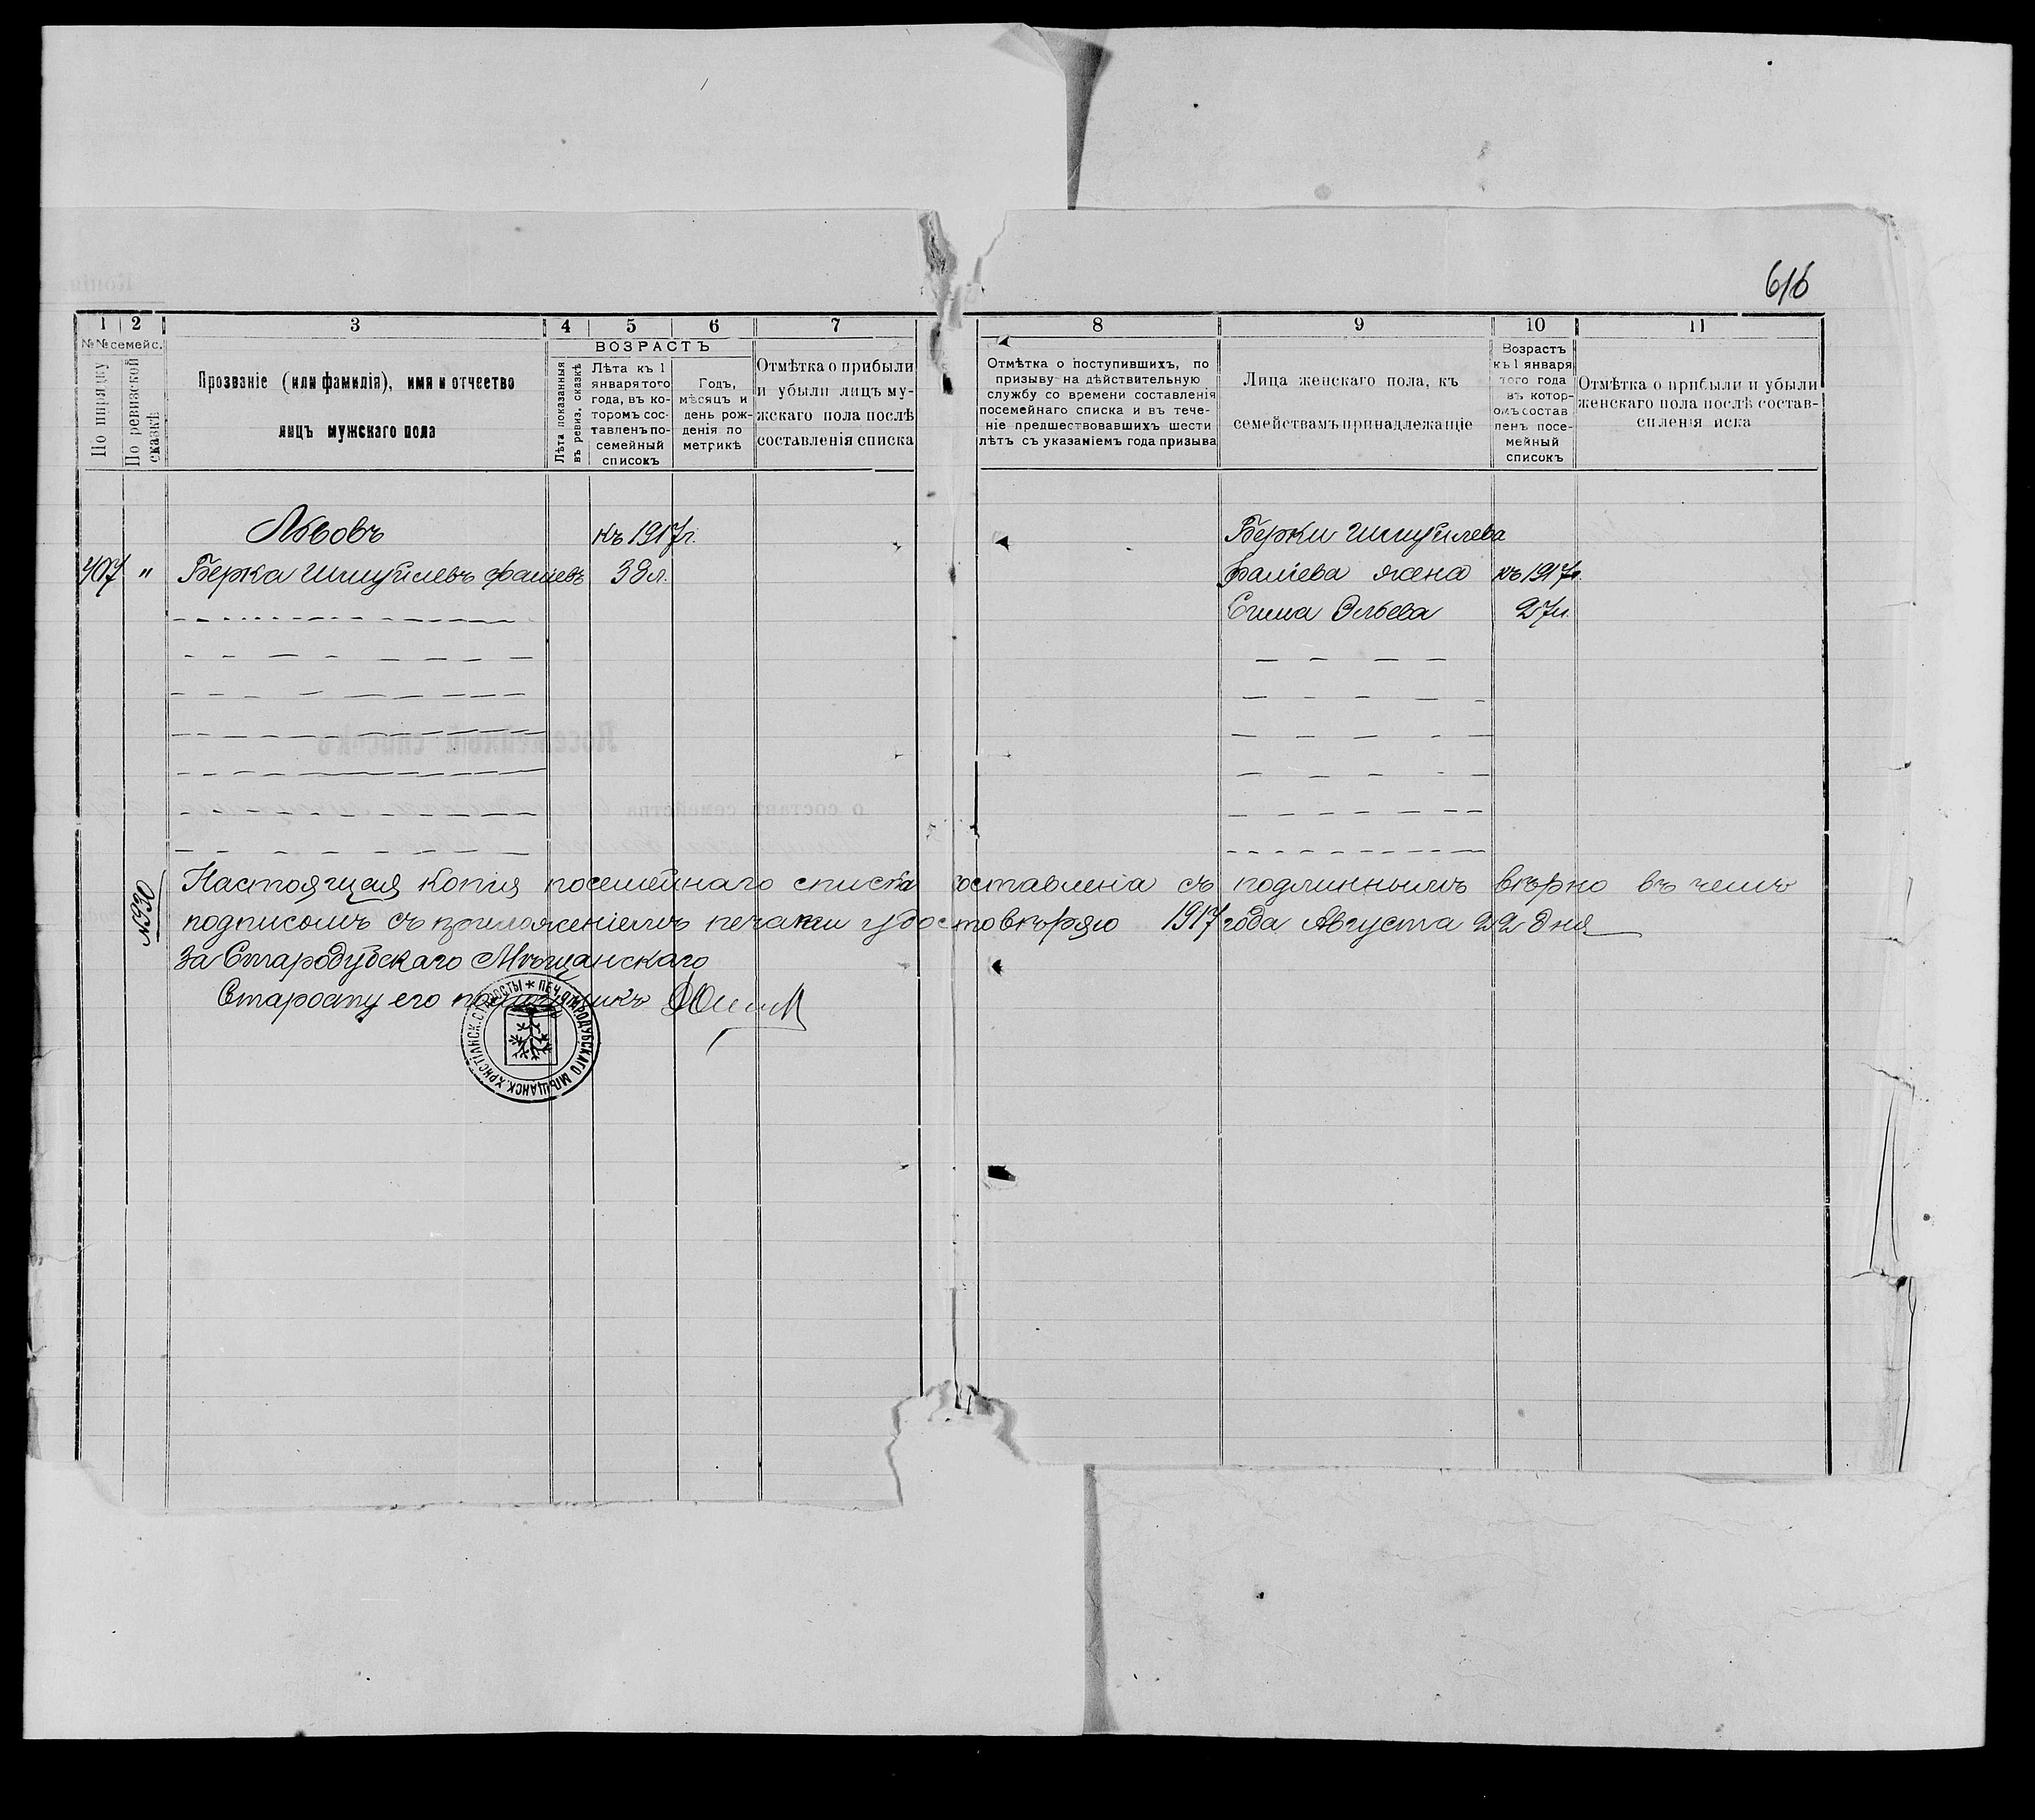 616
1 2 3 4 5 6 7 8 9 10 11
№№ семейс.
По порядку
По ревизской сказкѣ
Прозваніе (или фамилія), имя и отчество
лицъ мужскаго пола
ВОЗРАСТЪ
Лѣта показанныя
въ ревиз. сказкѣ
Лѣта къ 1
января того
года, въ ко-
торомъ сос-
тавленъ по-
семейный
списокъ
Годъ,
мѣсяцъ и
день рож-
денія по
метрикѣ
Отмѣтка о прибыли
и убыли лицъ му-
жскаго пола послѣ
составленія списка
Отмѣтка о поступившихъ, по
призыву на дѣйствительную
службу со времени составленія
посемейнаго списка и въ тече-
ніе предшествовавшихъ шести
лѣтъ съ указаніемъ года призыва
Лица женскаго пола, къ
семействамъ принадлежащіе
Возрастъ
къ 1 января
того года
въ котор-
омъ состав
ленъ посе-
мейный
списокъ
Отмѣтка о прибыли и убыли
женскаго пола послѣ состав-
спленія иска
Львовъ къ 1917г. Берки Шмуйлева
407 " Берка Шмуйлевъ Фалievъ 38л. Фаліева жена къ 1917г.
Сима Эльева 27л.
№930
Настоящая копія посемейнаго списка составлена съ подлиннымъ вѣрно въ чемъ
подписомъ съ приложеніемъ печати удостовѣряю 1917 года Августа 22 дня
За Стародубскаго Мѣщанскаго
Старосту его
ПЕЧ. СТАРОДУБСКАГО МѢЩАНСК. ХРИСТІАНСК. СТАРОСТЫ